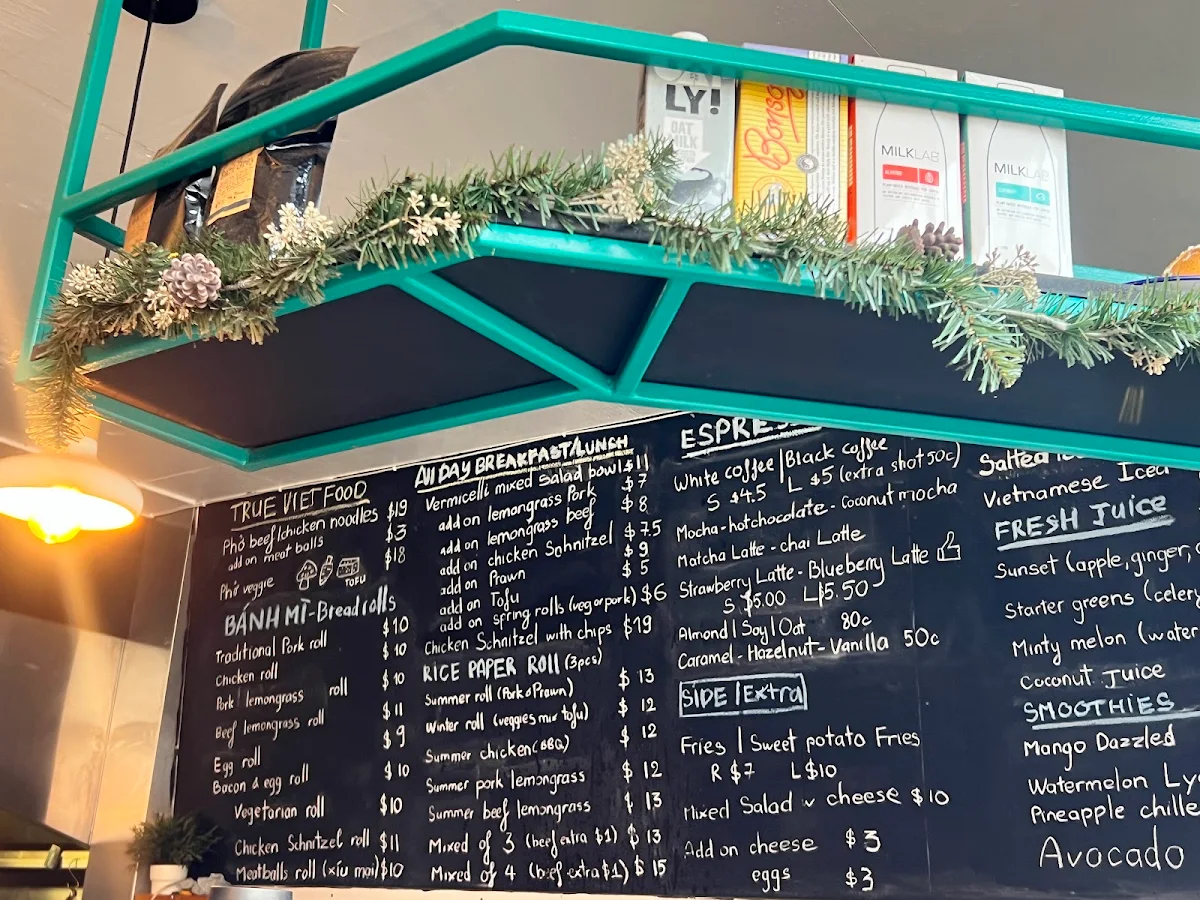 LY!
OAT
MILK
Bonsoy
MILKLAB
ALMOND
MILKLAB
TRUE VIET FOOD
Phở beef/chicken noodles $19
add on meat balls $3
Phở veggie TOFU $18
BÁNH MÌ - Bread rolls
Traditional Pork roll $10
Chicken roll $10
Pork lemongrass roll $10
Beef lemongrass roll $11
Egg roll $9
Bacon & egg roll $10
Vegetarian roll $10
Chicken Schnitzel roll $11
Meatballs roll (xíu mại) $10
All DAY BREAKFAST/LUNCH
Vermicelli mixed Salad bowl $11
add on lemongrass Pork $7
add on lemongrass beef $8
add on chicken Schnitzel $7.5
add on Prawn $9
add on Tofu $5
add on spring rolls (veg or pork) $6
Chicken Schnitzel with chips $19
RICE PAPER ROLL (3pcs)
Summer roll (Pork & Prawn) $13
Winter roll (veggies mix tofu) $12
Summer chicken (BBQ) $12
Summer pork lemongrass $12
Summer beef lemongrass $13
Mixed of 3 (beef extra $1) $13
Mixed of 4 (beef extra $1) $15
ESPRES
White coffee | Black coffee
S $4.5 L $5 (extra shot 50c)
Mocha - hotchocolate - coconut mocha
Matcha Latte - chai Latte
Strawberry Latte - Blueberry Latte
S $5.00 L $5.50
Almond | Soy | Oat 80c
Caramel - Hazelnut - Vanilla 50c
SIDE | Extra
Fries | Sweet potato Fries
R $7 L $10
Mixed Salad v cheese $10
Add on cheese $3
eggs $3
Salted
Vietnamese Iced
FRESH Juice
Sunset (apple, ginger,
Starter greens (celery
Minty melon (water
Coconut Juice
SMOOTHIES
Mango Dazzled
Watermelon Ly
Pineapple chille
Avocado